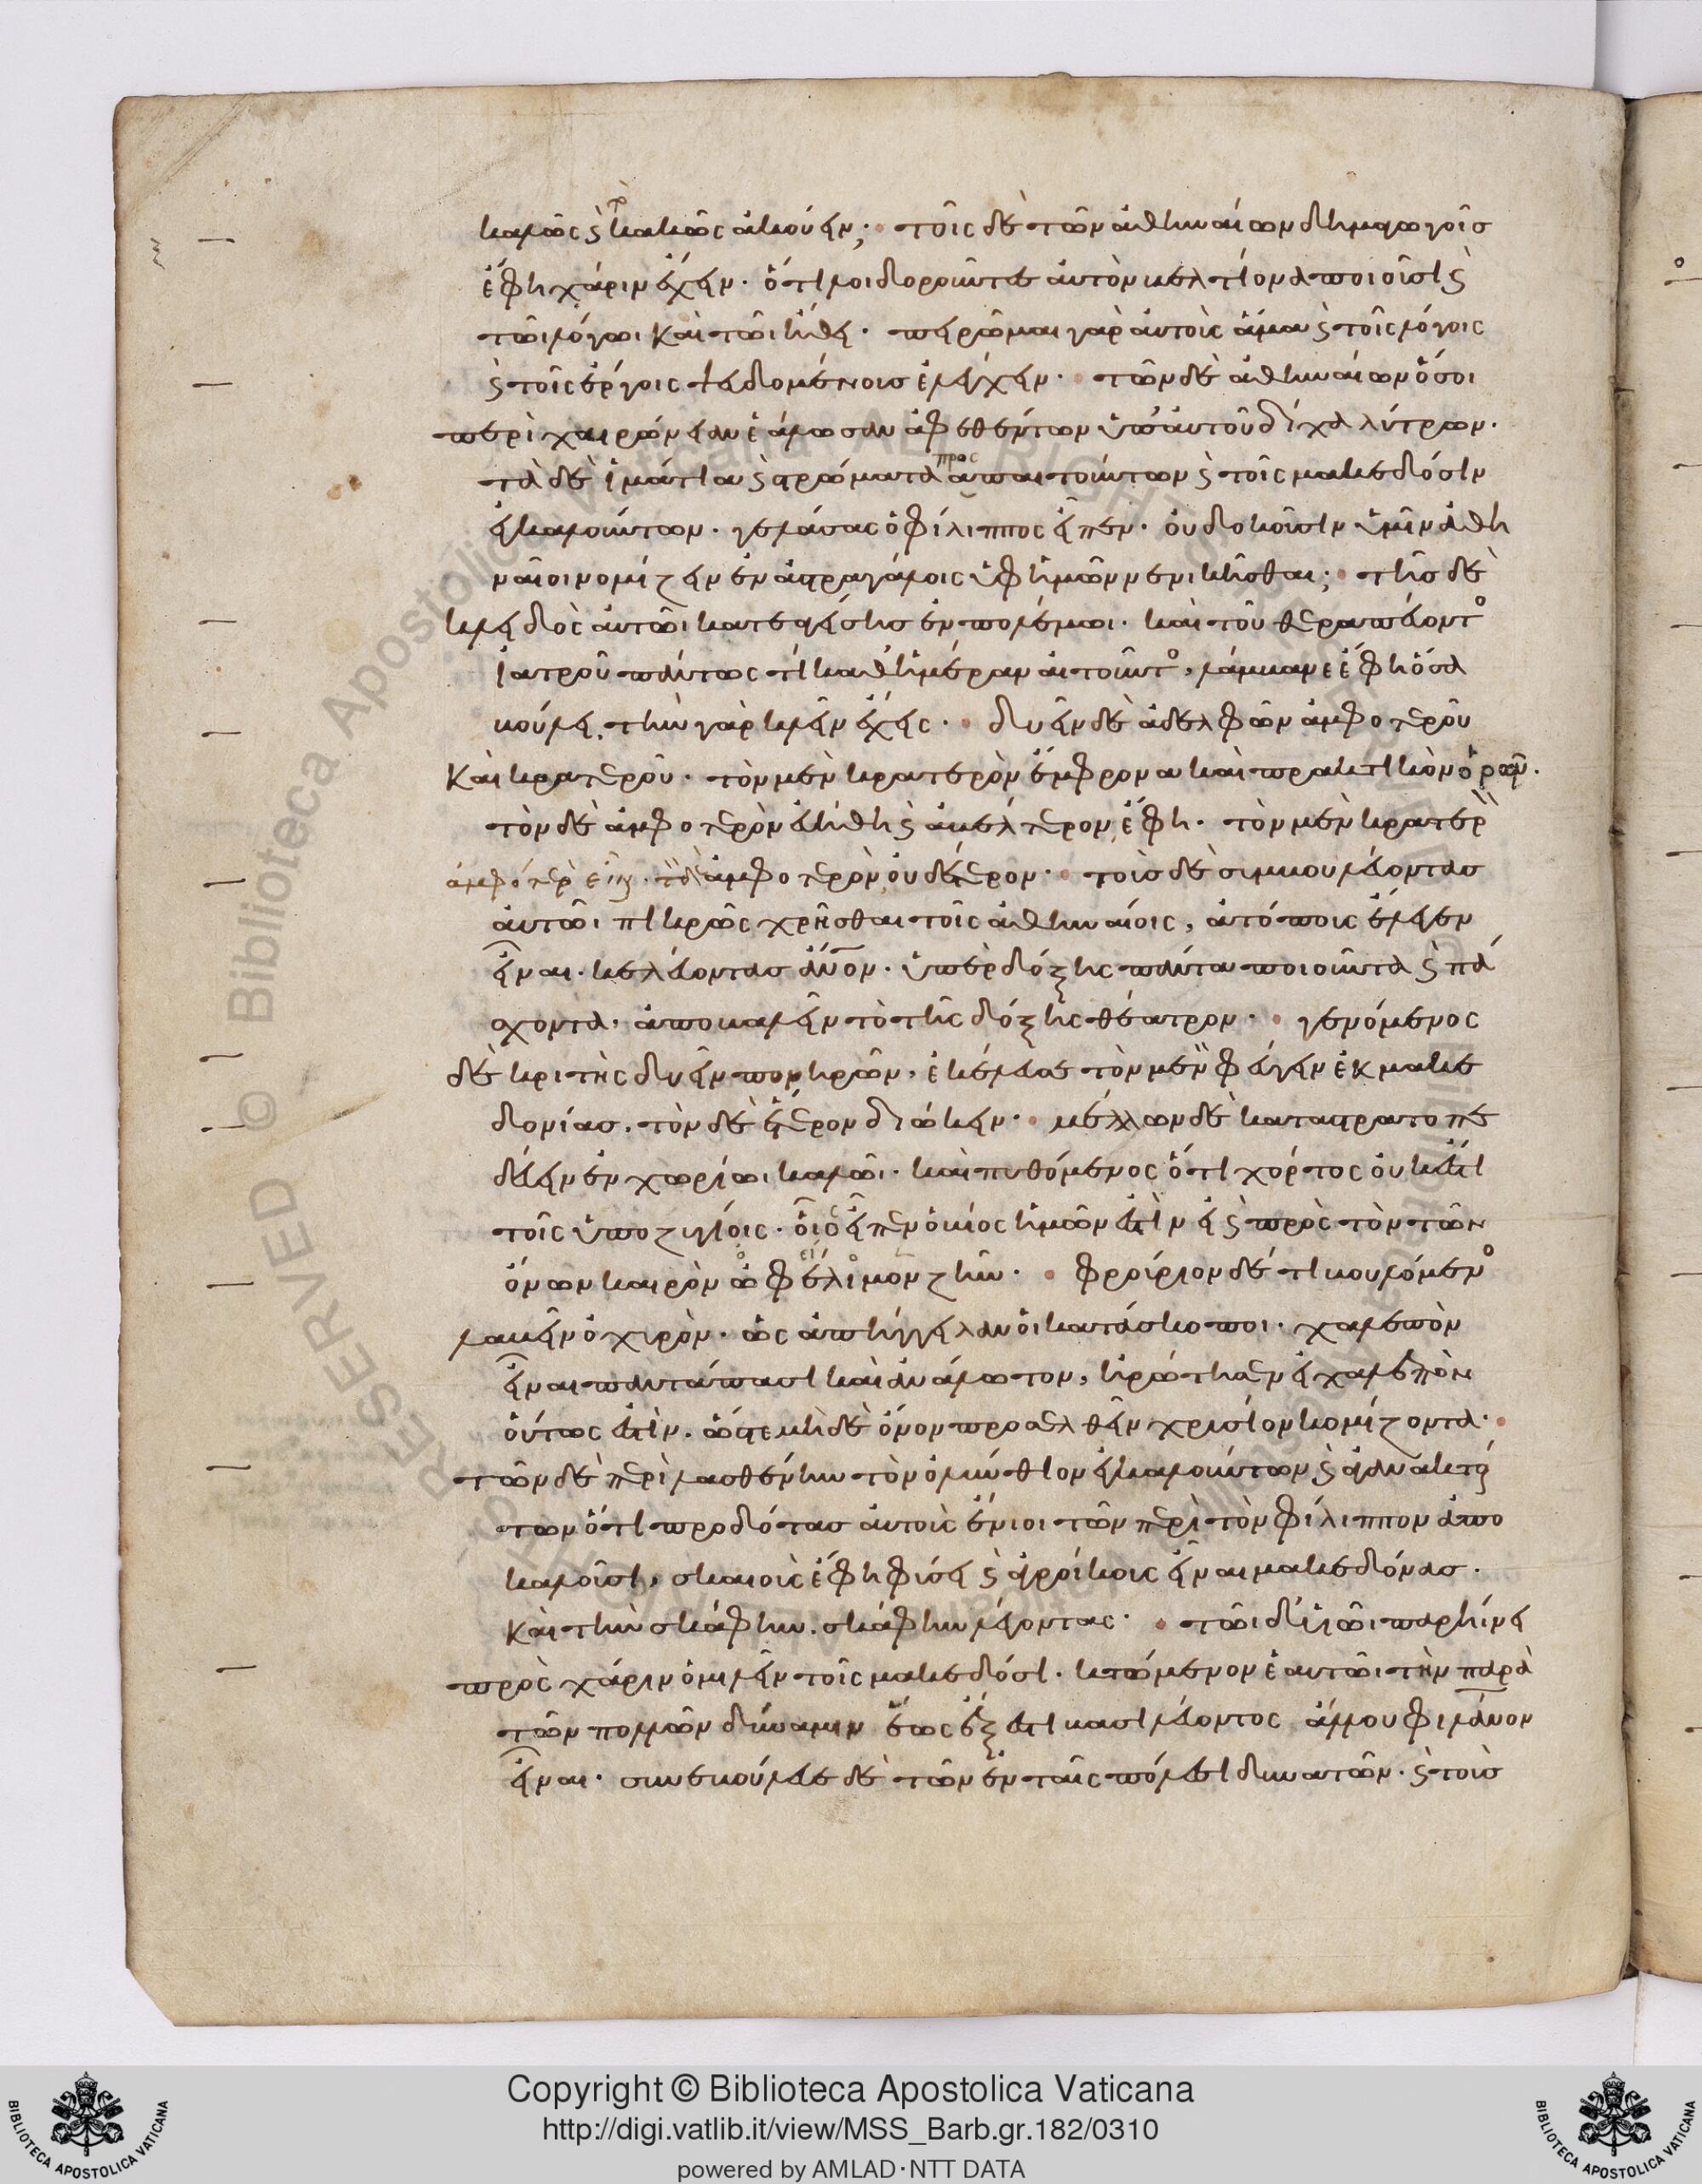 καλῶς ϛ κακῶς ἀκούειν; τοῖς δὲ τῶν ἀθηναίων δημαγωγοῖσ
ἔφη χάριν ἔχειν. ὅτι λοιδοροῦντες αὐτὸν βελτίονα ποιοῦσι ϛ
τῶι λόγωι καὶ τῶι ἤθει. πειρῶμαι γὰρ αὐτοὺς ἅμα ϛ τοῖς λόγοις
ϛ τοῖς ἔργοις ψευδομένουσ ἐλέγχειν. τῶν δὲ ἀθηναίων ὅσοι
περὶ χαιρώνειαν ἑάλωσαν ἀφεθέντων ὑπ' αὐτοῦ δίχα λύτρων.
τὰ δὲ ἱμάτια ϛ στρώματα προσ ἀπαιτούντων ϛ τοῖς μακεδόσιν
ἐγκαλούντων. γελάσας ὁ φίλιππος εἶπεν. οὐ δοκοῦσιν ὑμῖν ἀθη
ναῖοι νομίζειν ἐν ἀστραγάλοις ὑφ' ἡμῶν νενικῆσθαι; τῆσ δὲ
κλειδὸς αὐτῶι κατεαγείσησ ἐν πολέμωι. καὶ τοῦ θεραπεύοντο
ἰατροῦ πάντως τὶ καθ' ἡμέραν αἰτοῦντο, λάμβανε ἔφη ὅσα
βούλει, τὴν γὰρ κλεῖν ἔχεις. δυεῖν δὲ ἀδελφῶν ἀμφοτεροῦ
καὶ κρατεροῦ. τὸν μὲν κρατερὸν ἔμφρονα καὶ πρακτικὸν ὁρῶν.
τὸν δὲ ἀμφοτερὸν εὐήθη ϛ ἀβέλτερον, ἔφη. τὸν μὲν κρατερ
ἀμφότερ εἶν. τδ ἀμφοτερὸν οὐδέτερον. τοὺσ δὲ συμβουλεύοντασ
αὐτῶι πικρῶς χρῆσθαι τοῖς ἀθηναίοις, ἀτόπους ἔλεγεν
εἶναι. κελεύοντασ ἄνον. ὑπὲρ δόξης πάντα ποιοῦντα ϛ πά
σχοντα. ἀποβαλεῖν τὸ τῆς δόξης θέατρον. γενόμενος
δὲ κριτὴς δυεῖν πονηρῶν, ἐκέλευσε τὸν μὲν φεύγειν ἐκ μακε
δονίασ. τὸν δὲ ἕτερον διώκειν. μέλλων δὲ καταστρατοπε
δεύειν ἐν χωρίωι καλῶι. καὶ πυθόμενος ὅτι χόρτος οὐκ ἔστι
τοῖς ὑποζυγίοις. οἷος εἶπεν ὁ βίος ἡμῶν ἐστὶν εἰ ϛ πρὸς τὸν τῶν
ὄνων καιρὸν ὠφείλομεν ζῆν. φρούριον δέ τι βουλόμενο
λαβεῖν ὀχυρὸν. ὡς ἀπήγγειλαν οἱ κατάσκοποι. χαλεπὸν
εἶναι παντάπασι καὶ ἀνάλωτον, ἠρώτησεν εἰ χαλεπὸν
οὕτως ἐστὶν. ὥστε μὴ δὲ ὄνον προσελθεῖν χρυσίον κομίζοντα.
τῶν δὲ περὶ λασθένην τὸν ὀλύνθιον ἐγκαλούντων ϛ ἀγανακτού
των ὅτι προδότασ αὐτοὺς ἔνιοι τῶν περὶ τὸν φίλιππον ἀπο
καλοῦσι, σκαιοὺς ἔφη φύσει ϛ ἀγροίκους εἶναι μακεδόνασ.
καὶ τὴν σκάφην. σκάφην λέγοντας. τῶι δὲ υἱῶι παρήινει
πρὸς χάριν ὁμιλεῖν τοῖς μακεδόσι. κτώμενον ἑαυτῶι τὴν παρὰ
τῶν πολλῶν δύναμιν ἕως ἔξεστι βασιλεύοντος ἄλλου φιλάνον
εἶναι. συνεβούλευε δὲ τῶν ἐν ταῖς πόλεσι δυνατῶν. ϛ τοὺσ
Copyright © Biblioteca Apostolica Vaticana
http://digi.vatlib.it/view/MSS_Barb.gr.182/0310
powered by AMLAD·NTT DATA
BIBLIOTECA APOSTOLICA VATICANA
BIBLIOTECA APOSTOLICA VATICANA